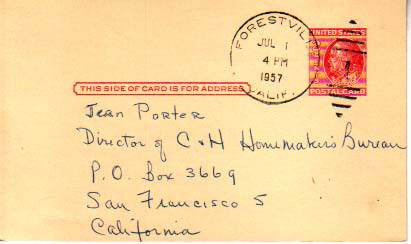 FORESTVILLE
JUL 1
4 PM
1957
CALIF.
UNITED STATES
POSTAL CARD
THIS SIDE OF CARD IS FOR ADDRESS
Jean Porter
Director of C & H Homemakers Bureau
P.O. Box 3669
San Francisco 5
California